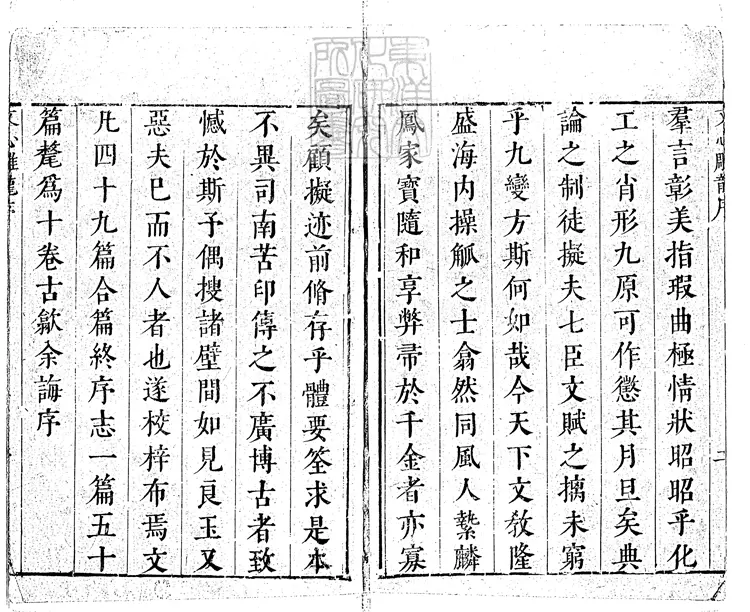 文心雕龍序
二
羣言彰美指瑕曲極情狀昭昭乎化
工之肖形九原可作懲其月旦矣典
論之制徒擬夫七臣文賦之摛未窮
乎九變方斯何如哉今天下文敎隆
盛海内操觚之士翕然同風人縶麟
鳳家寶隨和享弊帚於千金者亦寡
矣顧擬迹前脩存乎體要筌求是本
不異司南苦印傳之不廣博古者致
憾於斯予偶搜諸壁間如見良玉又
惡夫已而不人者也遂校梓布焉文
凡四十九篇合篇終序志一篇五十
篇釐爲十卷古歙余誨序
文心雕龍序